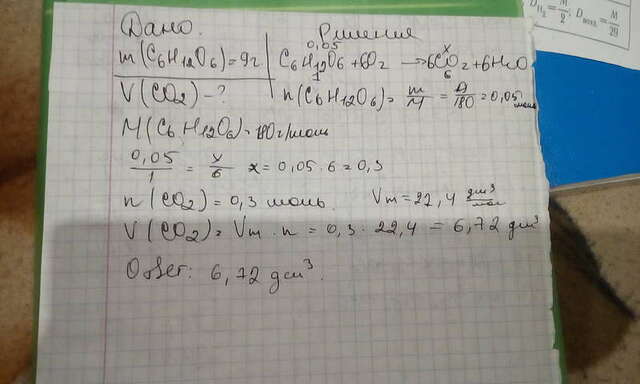 Дано. Решения
m(C6H12O6)=9г
0,05 x
C6H12O6+6O2 →6CO2+6H2O
1 6
V(CO2)-?
n(C6H12O6)= m/M = 9/180 =0,05моль
M(C6H12O6)=180г/моль
0,05/1 = x/6 x=0,05·6=0,3
n(CO2)=0,3 моль. Vm=22,4 дм³/моль
V(CO2)=Vm·n=0,3·22,4=6,72 дм³
Ответ: 6,72 дм³.
D H2 = M/2; D возд. = M/29